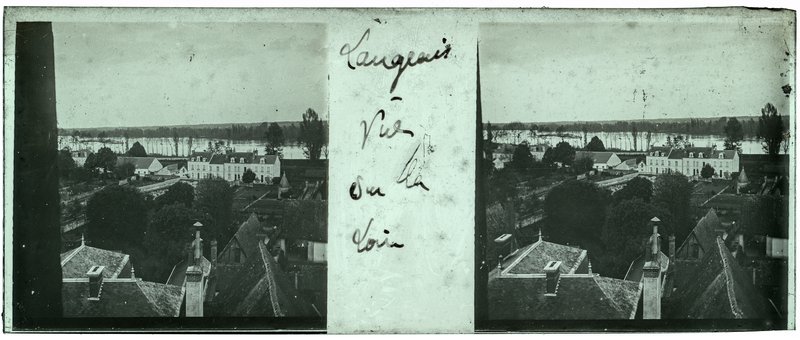 Langeais
Vue
sur la
Loire